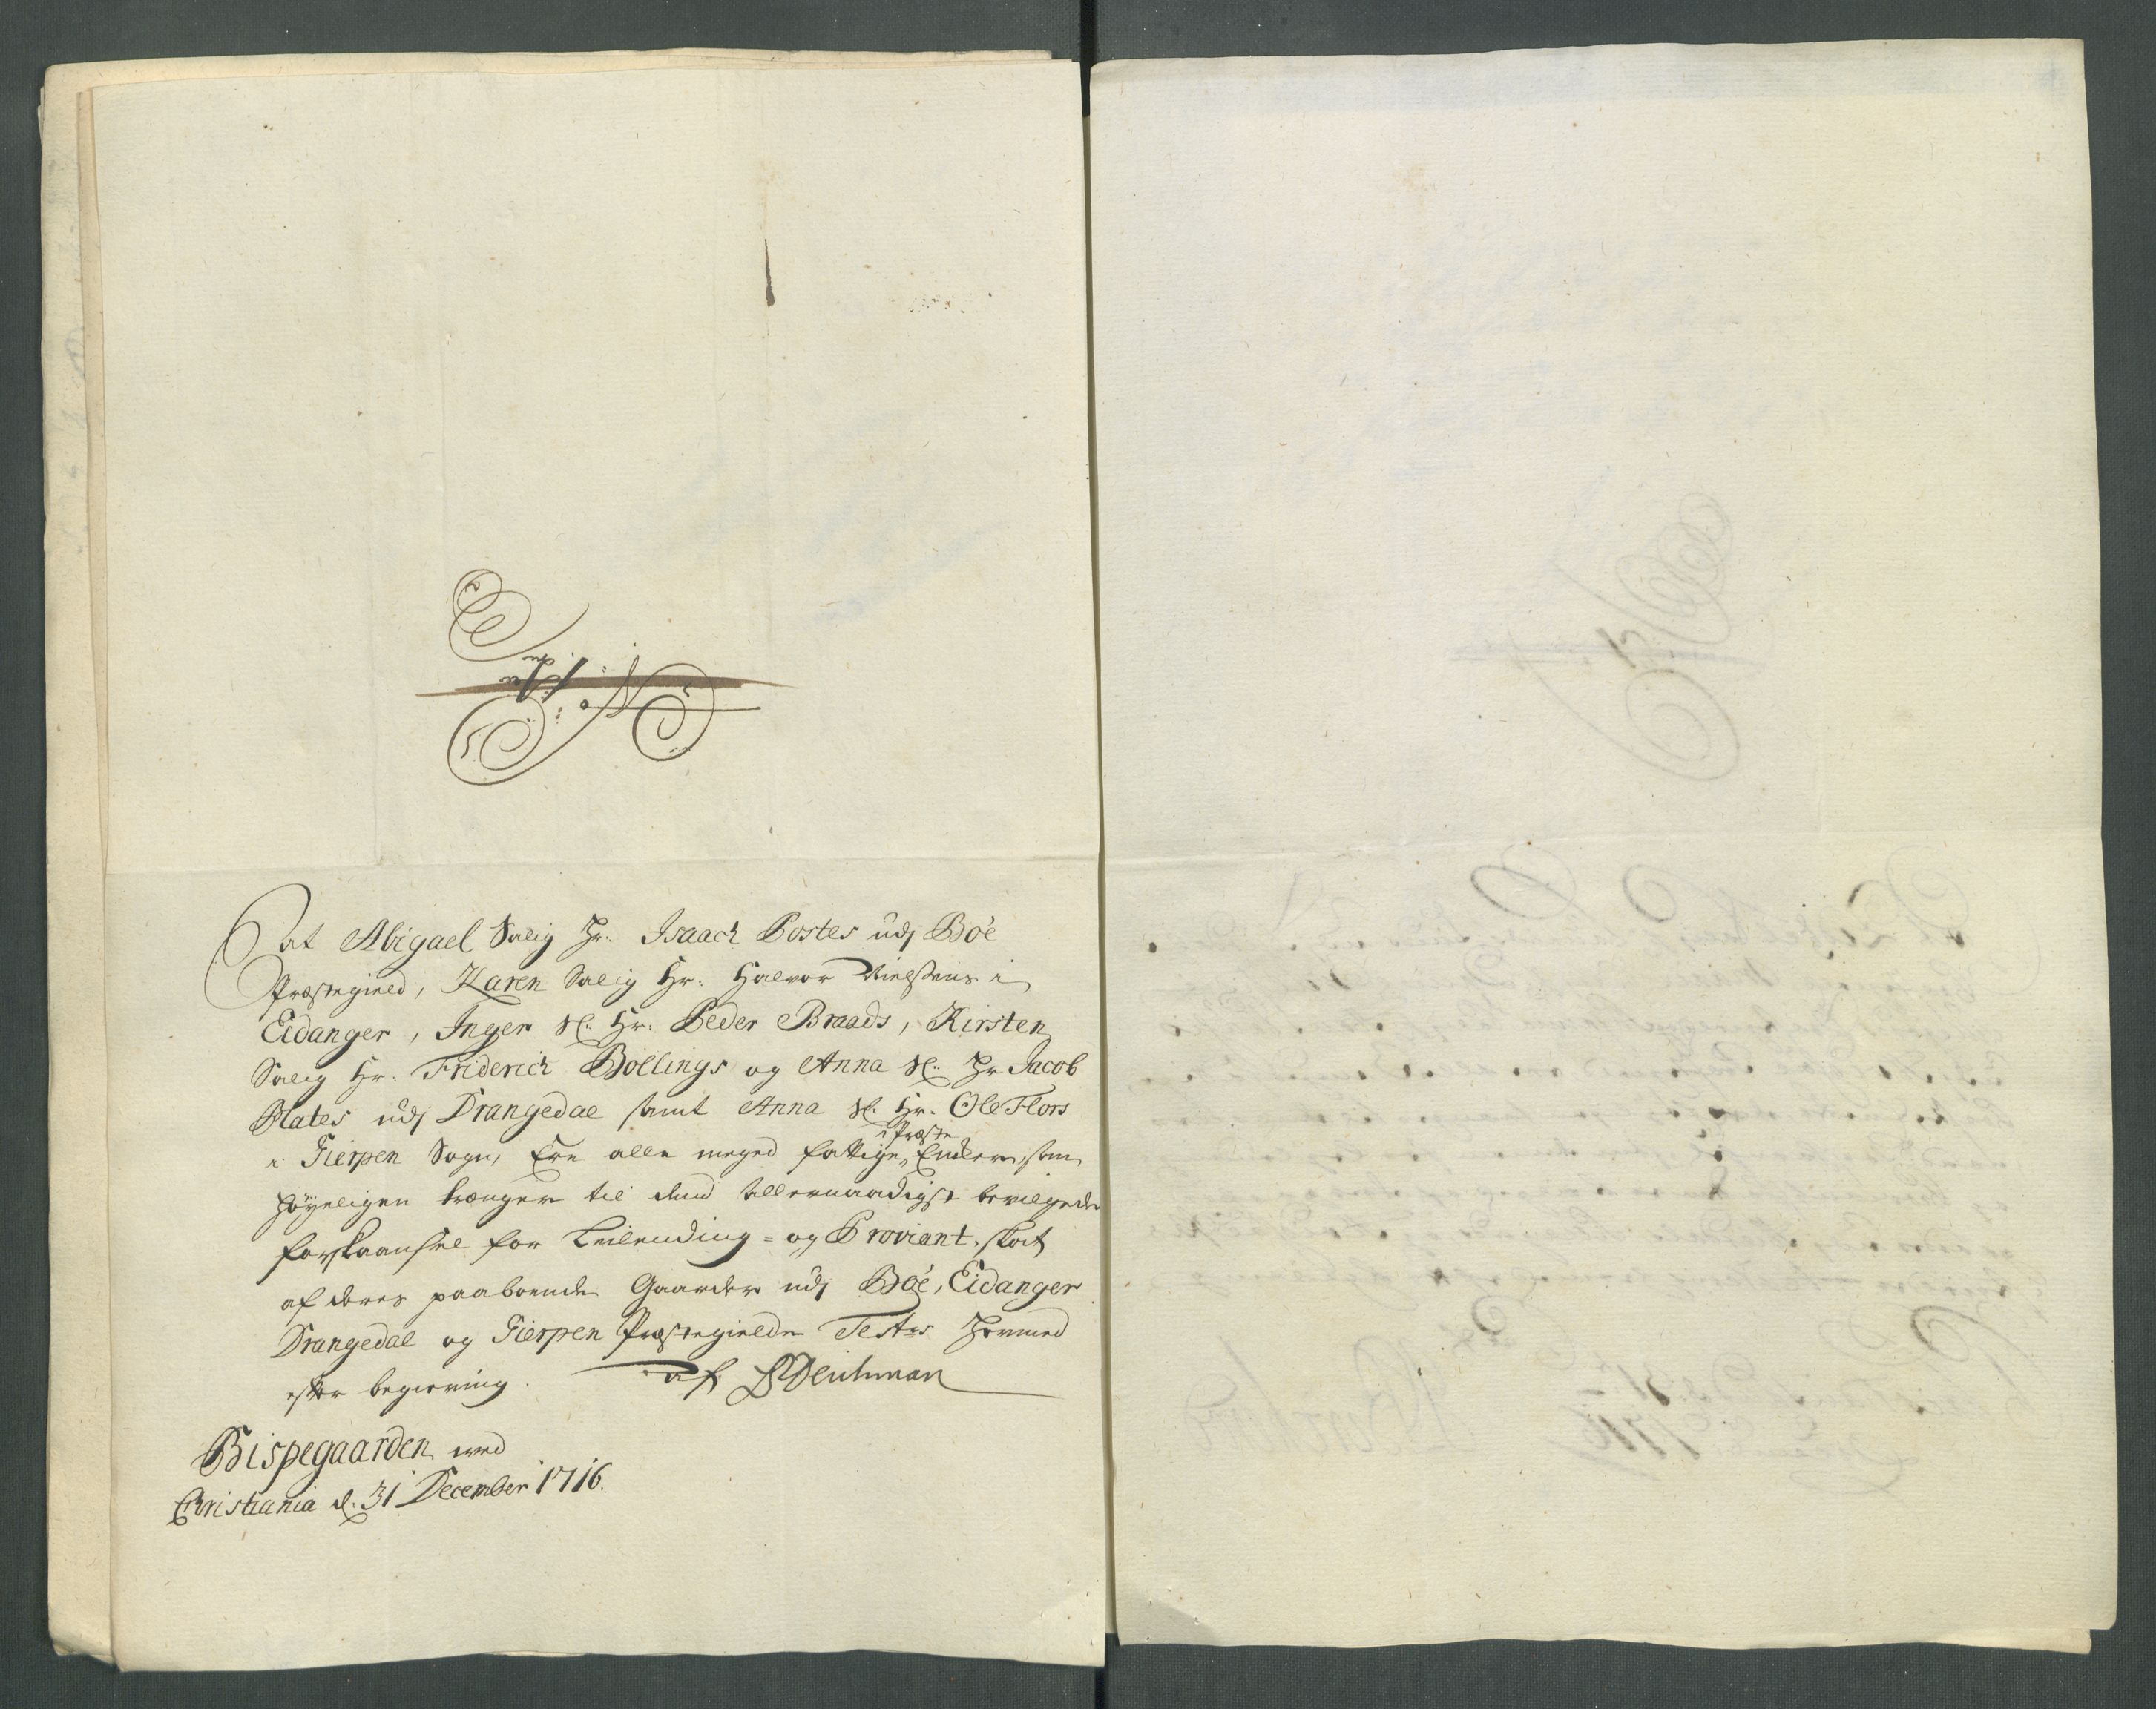 At Abigael Salig Hr. Isaach Postes udj Böe
Præstegield, Karen Salig Hr. Halvor Nielsens i
Eidanger, Inger Sl. Hr. Peder Braads, Kirsten
Salig Hr. Friderich Böllings og Anna Sl. Hr Jacob
Plates udj Drangedal samt Anna Sl. Hr. Ole Flors
i Gierpen Sogn, Ere alle meged fattige Præste Encker, som
höyeligen trænger til dend allernaadigst bevilgede
forskaansel for Leilending- og Proviant-skat
af deres paaboende Gaarder udj Böe, Eidanger
Drangedal og Gierpen Præstegielde Testes hermed
efter begiering. af BDeichman
Bispegaarden ved
Christiania d. 31 December 1716.